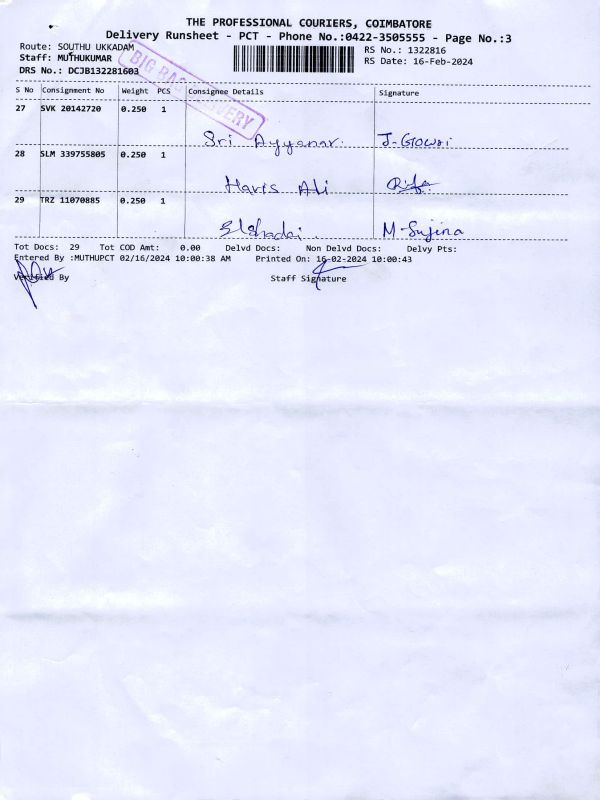 THE PROFESSIONAL COURIERS, COIMBATORE
Delivery Runsheet - PCT - Phone No.:0422-3505555 - Page No.:3
Route: SOUTHU UKKADAM
Staff: MUTHUKUMAR
DRS No.: DCJB132281603
RS No.: 1322816
RS Date: 16-Feb-2024
BIG BAG DELIVERY
S No Consignment No Weight PCS Consignee Details Signature
27 SVK 20142720 0.250 1
Sri Ayyanar. J-Gowri
28 SLM 339755805 0.250 1
Haris Ali
29 TRZ 11070885 0.250 1
Elshadai. M-Sujina
Tot Docs: 29 Tot COD Amt: 0.00 Delvd Docs: Non Delvd Docs: Delvy Pts:
Entered By :MUTHUPCT 02/16/2024 10:00:38 AM Printed On: 16-02-2024 10:00:43
Verified By Staff Signature